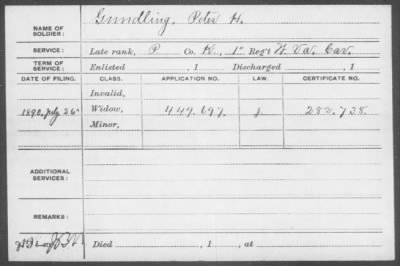 NAME OF SOLDIER: Gundling, Peter H.
SERVICE: Late rank, P Co. K, 1st Reg't W. Va. Cav.
TERM OF SERVICE: Enlisted , 1 Discharged , 1
DATE OF FILING. CLASS. APPLICATION NO. LAW. CERTIFICATE NO.
Invalid,
1890, July 26 Widow, 449.697 282.738
Minor,
ADDITIONAL SERVICES:
REMARKS:
Died , 1 , at